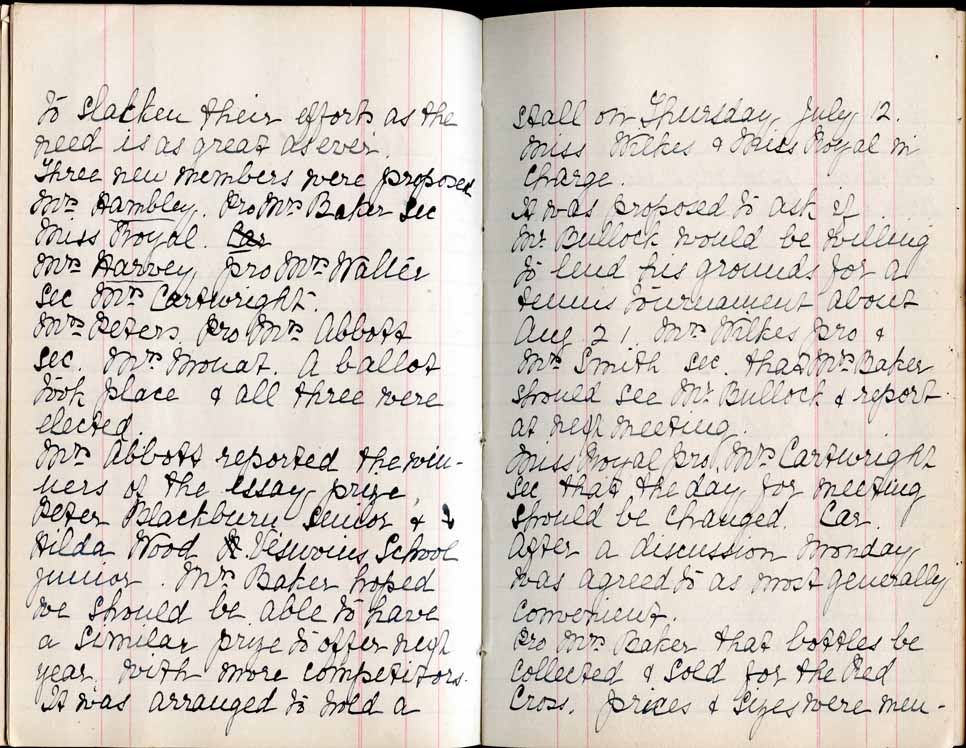 to slacken their efforts as the
need is as great as ever.
Three new members were proposed
Mrs Hambley. Pro Mrs Baker Sec
Miss Royal. Car
Mrs Harvey, pro Mrs Walter
Sec Mrs Cartwright.
Mrs Peters. Pro Mrs Abbott
Sec. Mrs Mouat. A ballot
took place & all three were
elected.
Mrs Abbott reported the win-
ners of the essay prize,
Peter Blackburn Senior, &
Hilda Wood Vesuvius School
junior. Mrs Baker hoped
we should be able to have
a similar prize to offer next
year with more competitors.
It was arranged to hold a
stall on Thursday, July 12.
Miss Wilkes & Miss Royal in
charge.
It was proposed to ask if
Mr Bullock would be willing
to lend his grounds for a
tennis tournament about
Aug 21. Mrs Wilkes pro &
Mrs Smith sec. that Mrs Baker
should see Mr Bullock & report
at next meeting.
Miss Royal pro, Mrs Cartwright
Sec that the day for meeting
should be changed. Car.
After a discussion Monday
was agreed to as most generally
convenient.
Pro Mrs Baker that bottles be
collected & sold for the Red
Cross. prices & sizes were men-